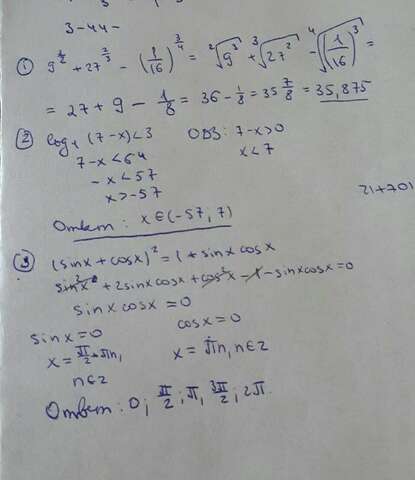 3-44-
① 9^(3/2) + 27^(2/3) - (1/16)^(3/4) = ²√9³ + ³√27² - ⁴√(1/16)³ =
= 27 + 9 - 1/8 = 36 - 1/8 = 35 7/8 = 35,875
② log₄ (7-x) < 3 ОДЗ: 7-x>0
7-x < 64 x < 7
-x < 57
x > -57
21+701
Ответ: x ∈ (-57; 7)
③ (sinx + cosx)² = 1 + sinx cosx
sin²x + 2sinx cosx + cos²x - 1 - sinx cosx = 0
sinx cosx = 0
sinx = 0 cosx = 0
x = π/2 + πn, x = πn, n∈z
n∈z
Ответ: 0; π/2; π, 3π/2; 2π.